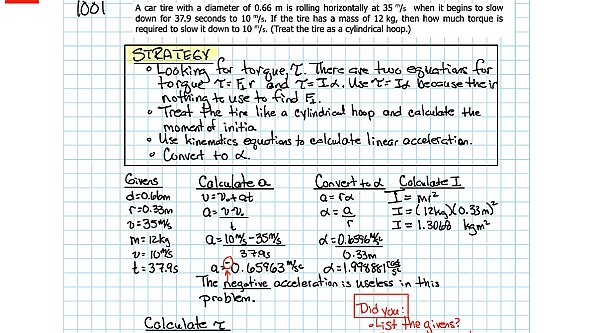 1001
A car tire with a diameter of 0.66 m is rolling horizontally at 35 m/s when it begins to slow
down for 37.9 seconds to 10 m/s. If the tire has a mass of 12 kg, then how much torque is
required to slow it down to 10 m/s. (Treat the tire as a cylindrical hoop.)
STRATEGY
• Looking for torque, τ. There are two equations for
torque τ=F⊥r and τ=Iα. Use τ=Iα because their
nothing to use to find F⊥.
• Treat the tire like a cylindrical hoop and calculate the
moment of initia
• Use kinematics equations to calculate linear acceleration.
• Convert to α.
Givens
d=0.66m
r=0.33m
v=35m/s
m=12kg
v=10m/s
t=37.9s
Calculate a
v=v₀+at
a=v-v₀
t
a=10m/s-35m/s
37.9s
a=-0.65963 m/s²
Convert to α
a=rα
α=a
r
α=0.6596m/s²
0.33m
α=1.998881 rad/s²
Calculate I
I=mr²
I=(12kg)(0.33m)²
I=1.3068 kgm²
The negative acceleration is useless in this
problem.
Did you:
• List the givens?
Calculate τ